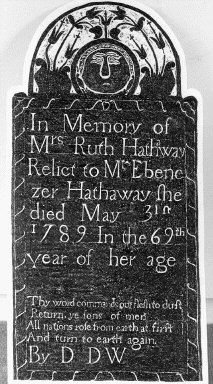 In Memory of
Mrs Ruth Hathway
Relict to Mr Ebene
zer Hathaway she
died May 31st
1789 In the 69th
year of her age
Thy word commands our flesh to dust
Return, ye sons of men
All nations rose from earth at first
And turn to earth again.
By D D W